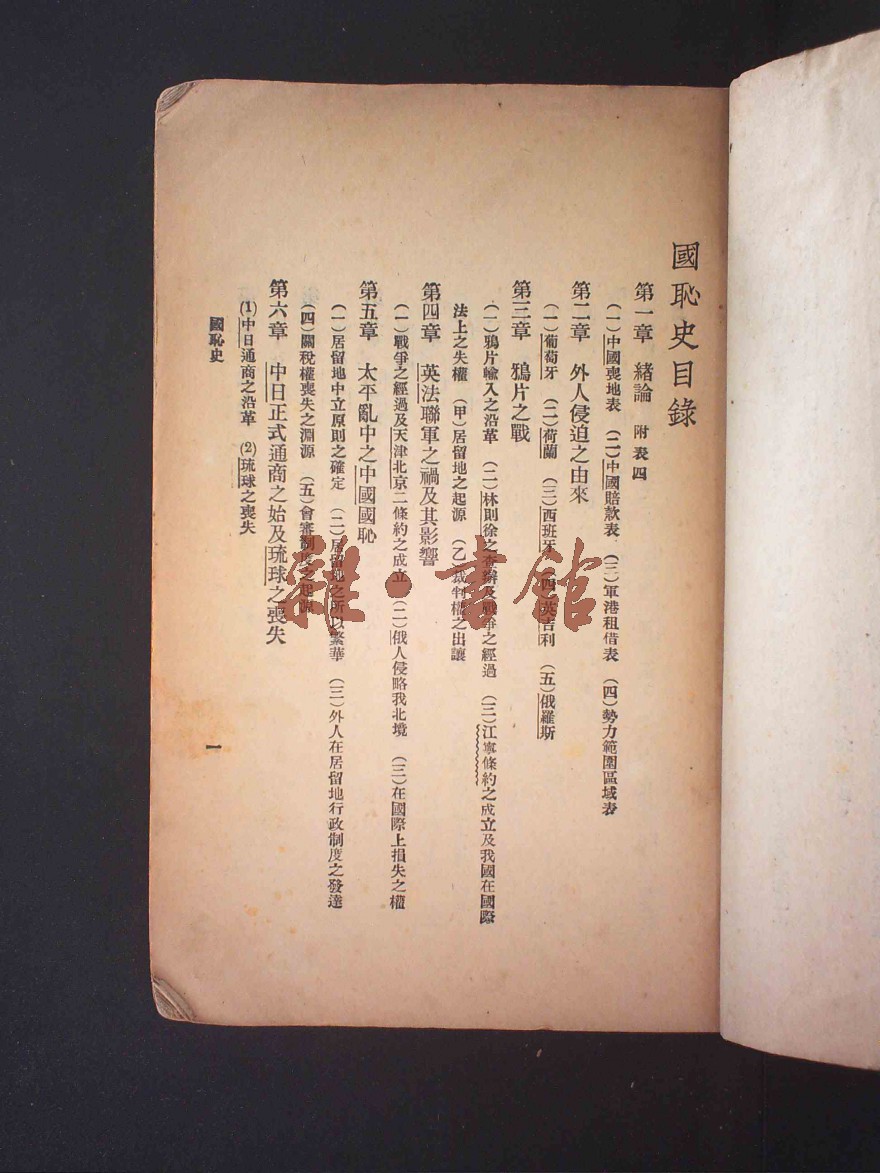 國恥史目錄
第一章　緒論　附表四
（一）中國喪地表　（二）中國賠款表　（三）軍港租借表　（四）勢力範圍區域表
第二章　外人侵迫之由來
（一）葡萄牙　（二）荷蘭　（三）西班牙　（四）英吉利　（五）俄羅斯
第三章　鴉片之戰
（一）鴉片輸入之沿革　（二）林則徐之查辦及戰爭之經過　（三）江寧條約之成立及我國在國際
法上之失權　（甲）居留地之起源　（乙）裁判權之出讓
第四章　英法聯軍之禍及其影響
（一）戰爭之經過及天津北京二條約之成立　（二）俄人侵略我北境　（三）在國際上損失之權
第五章　太平亂中之中國國恥
（一）居留地中立原則之確定　（二）居留地之所以繁華　（三）外人在居留地行政制度之發達
（四）關稅權喪失之淵源　（五）會審制度之起源
第六章　中日正式通商之始及琉球之喪失
(1)中日通商之沿革　(2)琉球之喪失
國恥史
一
雜·書館